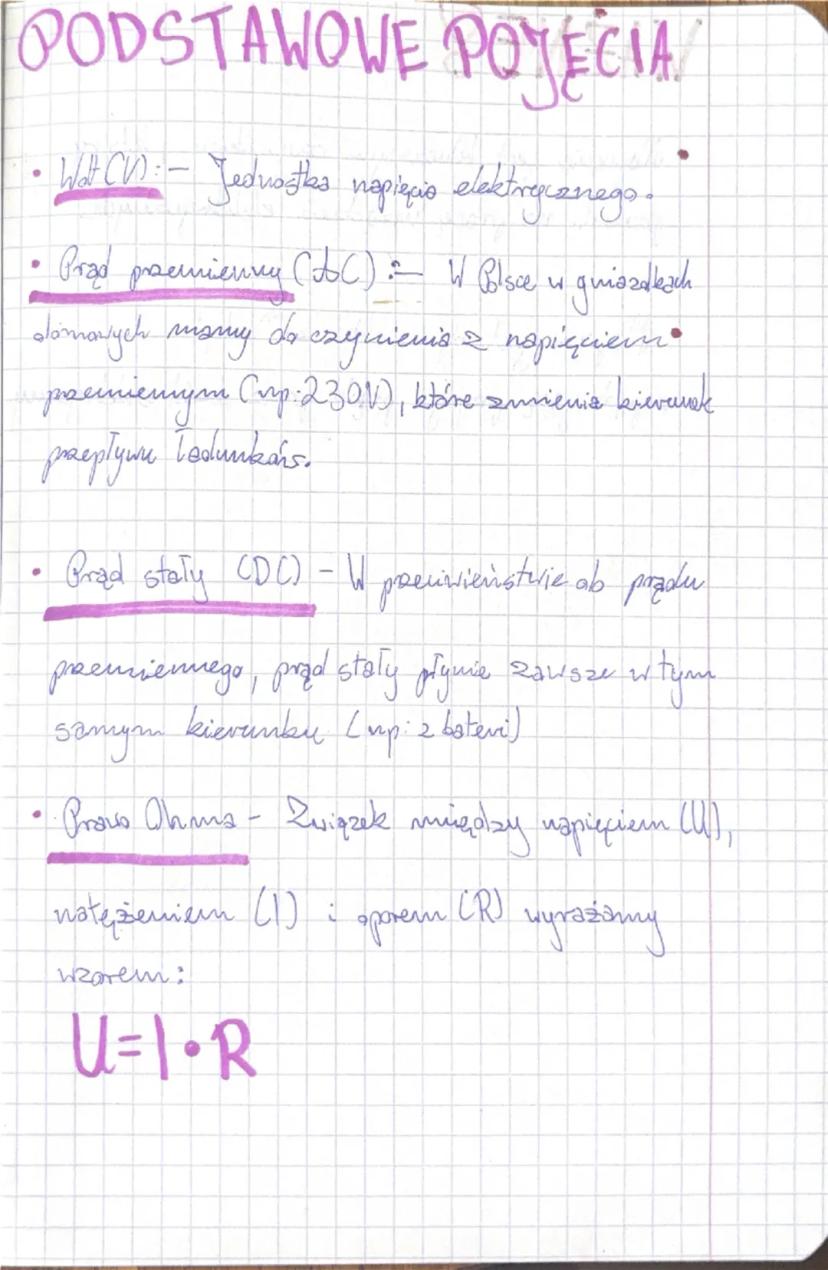 PODSTAWOWE POJĘCIA
• Wolt (V): - Jednostka napięcia elektrycznego.
• Prąd przemienny (AC) :- W Polsce w gniazdkach
domowych mamy do czynienia z napięciem
przemiennym (np: 230V), które zmienia kierunek
przepływu ładunków.
• Prąd stały (DC) - W przeciwieństwie do prądu
przemiennego, prąd stały płynie zawsze w tym
samym kierunku (np: z baterii)
• Prawo Ohma - Związek między napięciem (U),
natężeniem (I) i oporem (R) wyrażamy
wzorem:
U=I•R